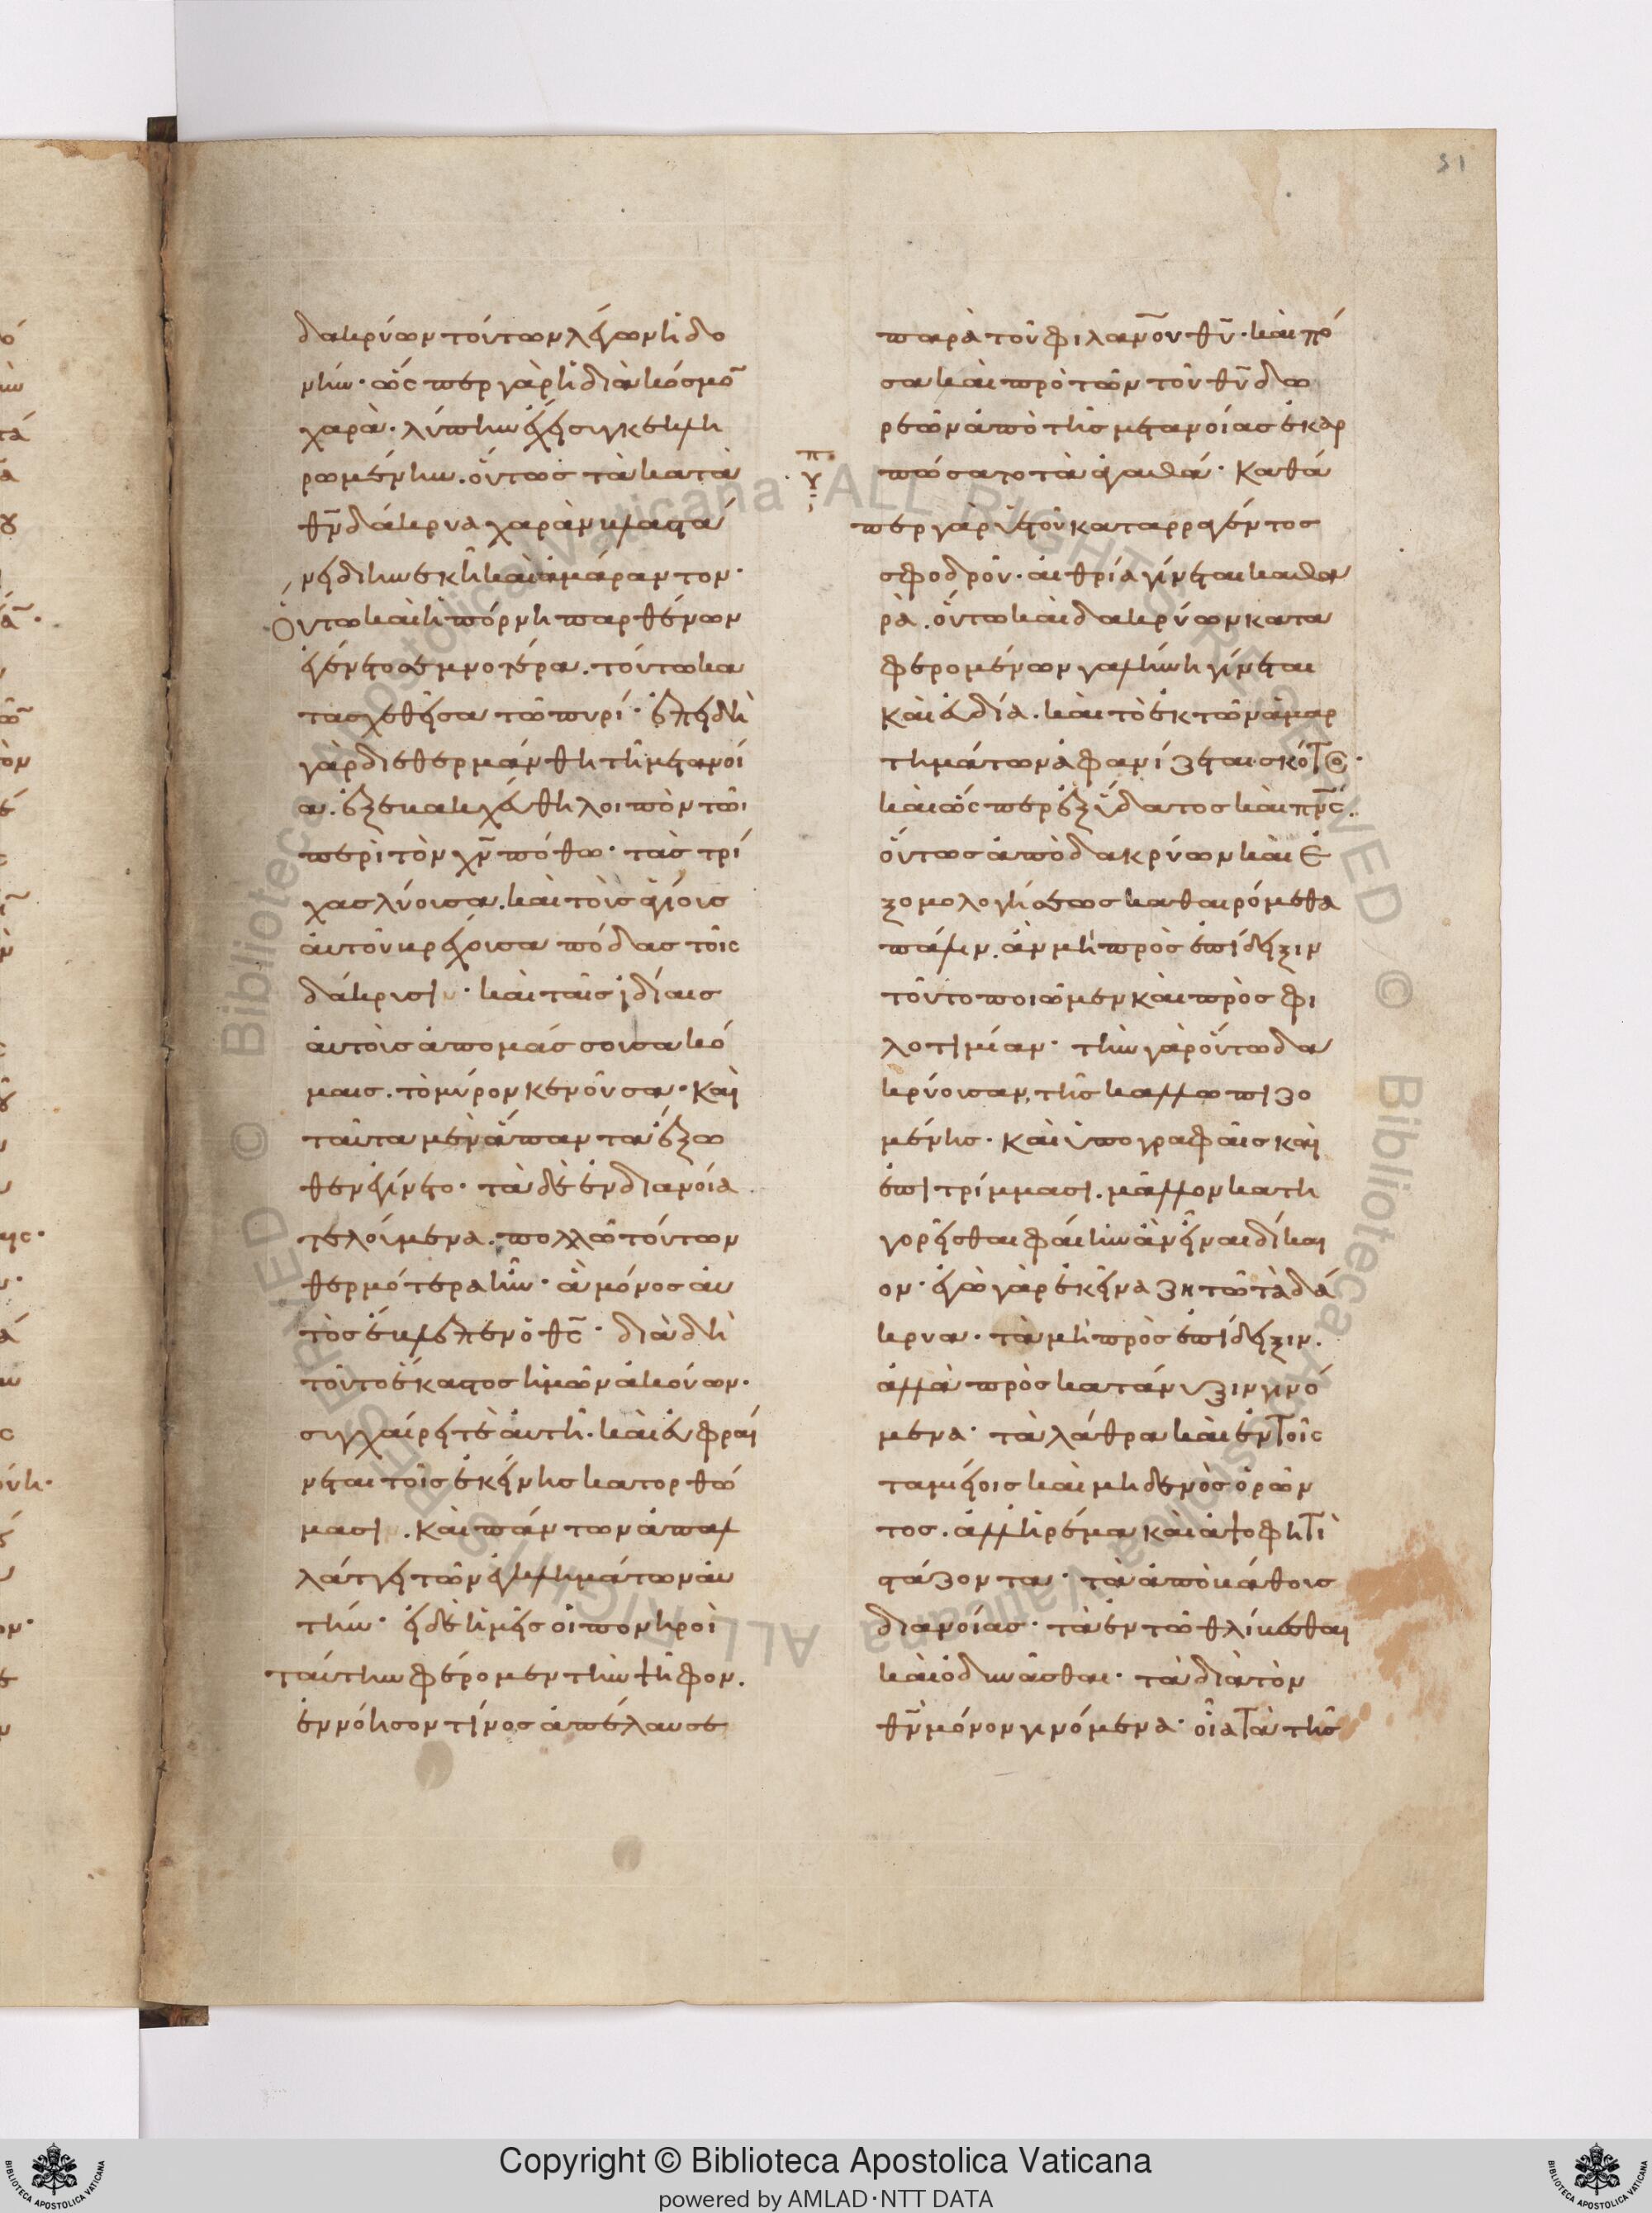 31
δακρύων τούτων λέγων ἡδο
νήν· ὥσπερ γὰρ ἡ διὰ κόσμο̅
χαρὰ· λύπην ἔχει συγκεκλη
ρωμένην. οὕτως τὰ κατὰ
θν̅ δάκρυα χαρὰν βλαστά
νει διηνεκῆ καὶ ἀμάραντον·
Οὕτω καὶ ἡ πόρνη παρθένων
ἐγένετο σεμνοτέρα. τούτω κα
τασχεθεῖσα τῶ πυρί· ἐπειδὴ
γὰρ διεθερμάνθη τῆ μετανοί
α. ἐξεβακχεύθη λοιπὸν τῶι
περὶ τὸν χν̅ πόθω· τὰς τρί
χας λύουσα. καὶ τοὺς ἁγίους
αὐτοῦ βρέχουσα πόδας τοῖς
δάκρυσι· καὶ ταῖς ἰδίαις
αὐτοὺς ἀπομάσσουσα κό
μαις. τὸ μύρον κενοῦσα· καὶ
ταῦτα μὲν ἅπαντα ἔξω
θεν ἐγίνετο· τὰ δὲ ἐν διανοία
τελούμενα. πολλῶ τούτων
θερμότερα ἦν· ἃ μόνος αὐ
τὸς ἔβλεπεν ὁ θς̅· διὰ δὴ
τοῦτο ἕκαστος ἡμῶν ἀκούων·
συγχαίρει τε αὐτῆ· καὶ εὐφραί
νεται τοῖς ἐκείνης κατορθώ
μασι. καὶ πάντων ἀπαλ
λάττει τῶν ἐγκλημάτων αὐ
τήν· εἰ δὲ ἡμεῖς οἱ πονηροὶ
ταύτην φέρομεν τὴν ψῆφον.
ἐννόησον τίνος ἀπέλαυσε
παρὰ τοῦ φιλαν̅ου θυ̅· καὶ πό
σα καὶ πρὸ τῶν τοῦ θυ̅ δω
ρεῶν ἀπὸ τῆς μετανοίας ἐκαρ
πώσατο τὰ ἀγαθά· Καθά
περ γὰρ ὑετοῦ καταρραγέντος
σφοδροῦ· αἰθρία γίνεται καθα
ρὰ. οὕτω καὶ δακρύων κατα
φερομένων γαλήνη γίνεται
καὶ εὐδία. καὶ τὸ ἐκ τῶν ἁμαρ
τημάτων ἀφανίζεται σκότος·
καὶ ὥσπερ ἐξ ὕδατος καὶ πν̅ς.
οὕτως ἀπὸ δακρύων καὶ ἐ
ξομολογήσεως καθαιρόμεθα
πάλιν. ἂν μὴ πρὸς ἐπίδειξιν
τοῦτο ποιῶμεν καὶ πρὸς φι
λοτιμίαν· τὴν γὰρ οὕτω δα
κρύουσαν, τῆς καλλωπιζο
μένης· καὶ ὑπογραφαῖς καὶ
ἐπιτρίμμασι. μᾶλλον κατη
γορεῖσθαι φαίην ἂν εἶναι δίκαι
ον· ἐγὼ γὰρ ἐκεῖνα ζητῶ τὰ δά
κρυα· τὰ μὴ πρὸς ἐπίδειξιν.
ἀλλὰ πρὸς κατάνυξιν γινό
μενα· τὰ λάθρα καὶ ἐν τοῖς
ταμείοις καὶ μηδενὸς ὁρῶν
τος. ἀλλ' ἠρέμα καὶ ἀψοφητὶ
στάζοντα· τὰ ἀπὸ βάθους
διανοίας· τὰ ἐν τῶ θλίβεσθαι
καὶ ὀδυνᾶσθαι· τὰ διὰ τὸν
θν̅ μόνον γινόμενα· οἷα τὰ τῆς
Copyright © Biblioteca Apostolica Vaticana
powered by AMLAD·NTT DATA